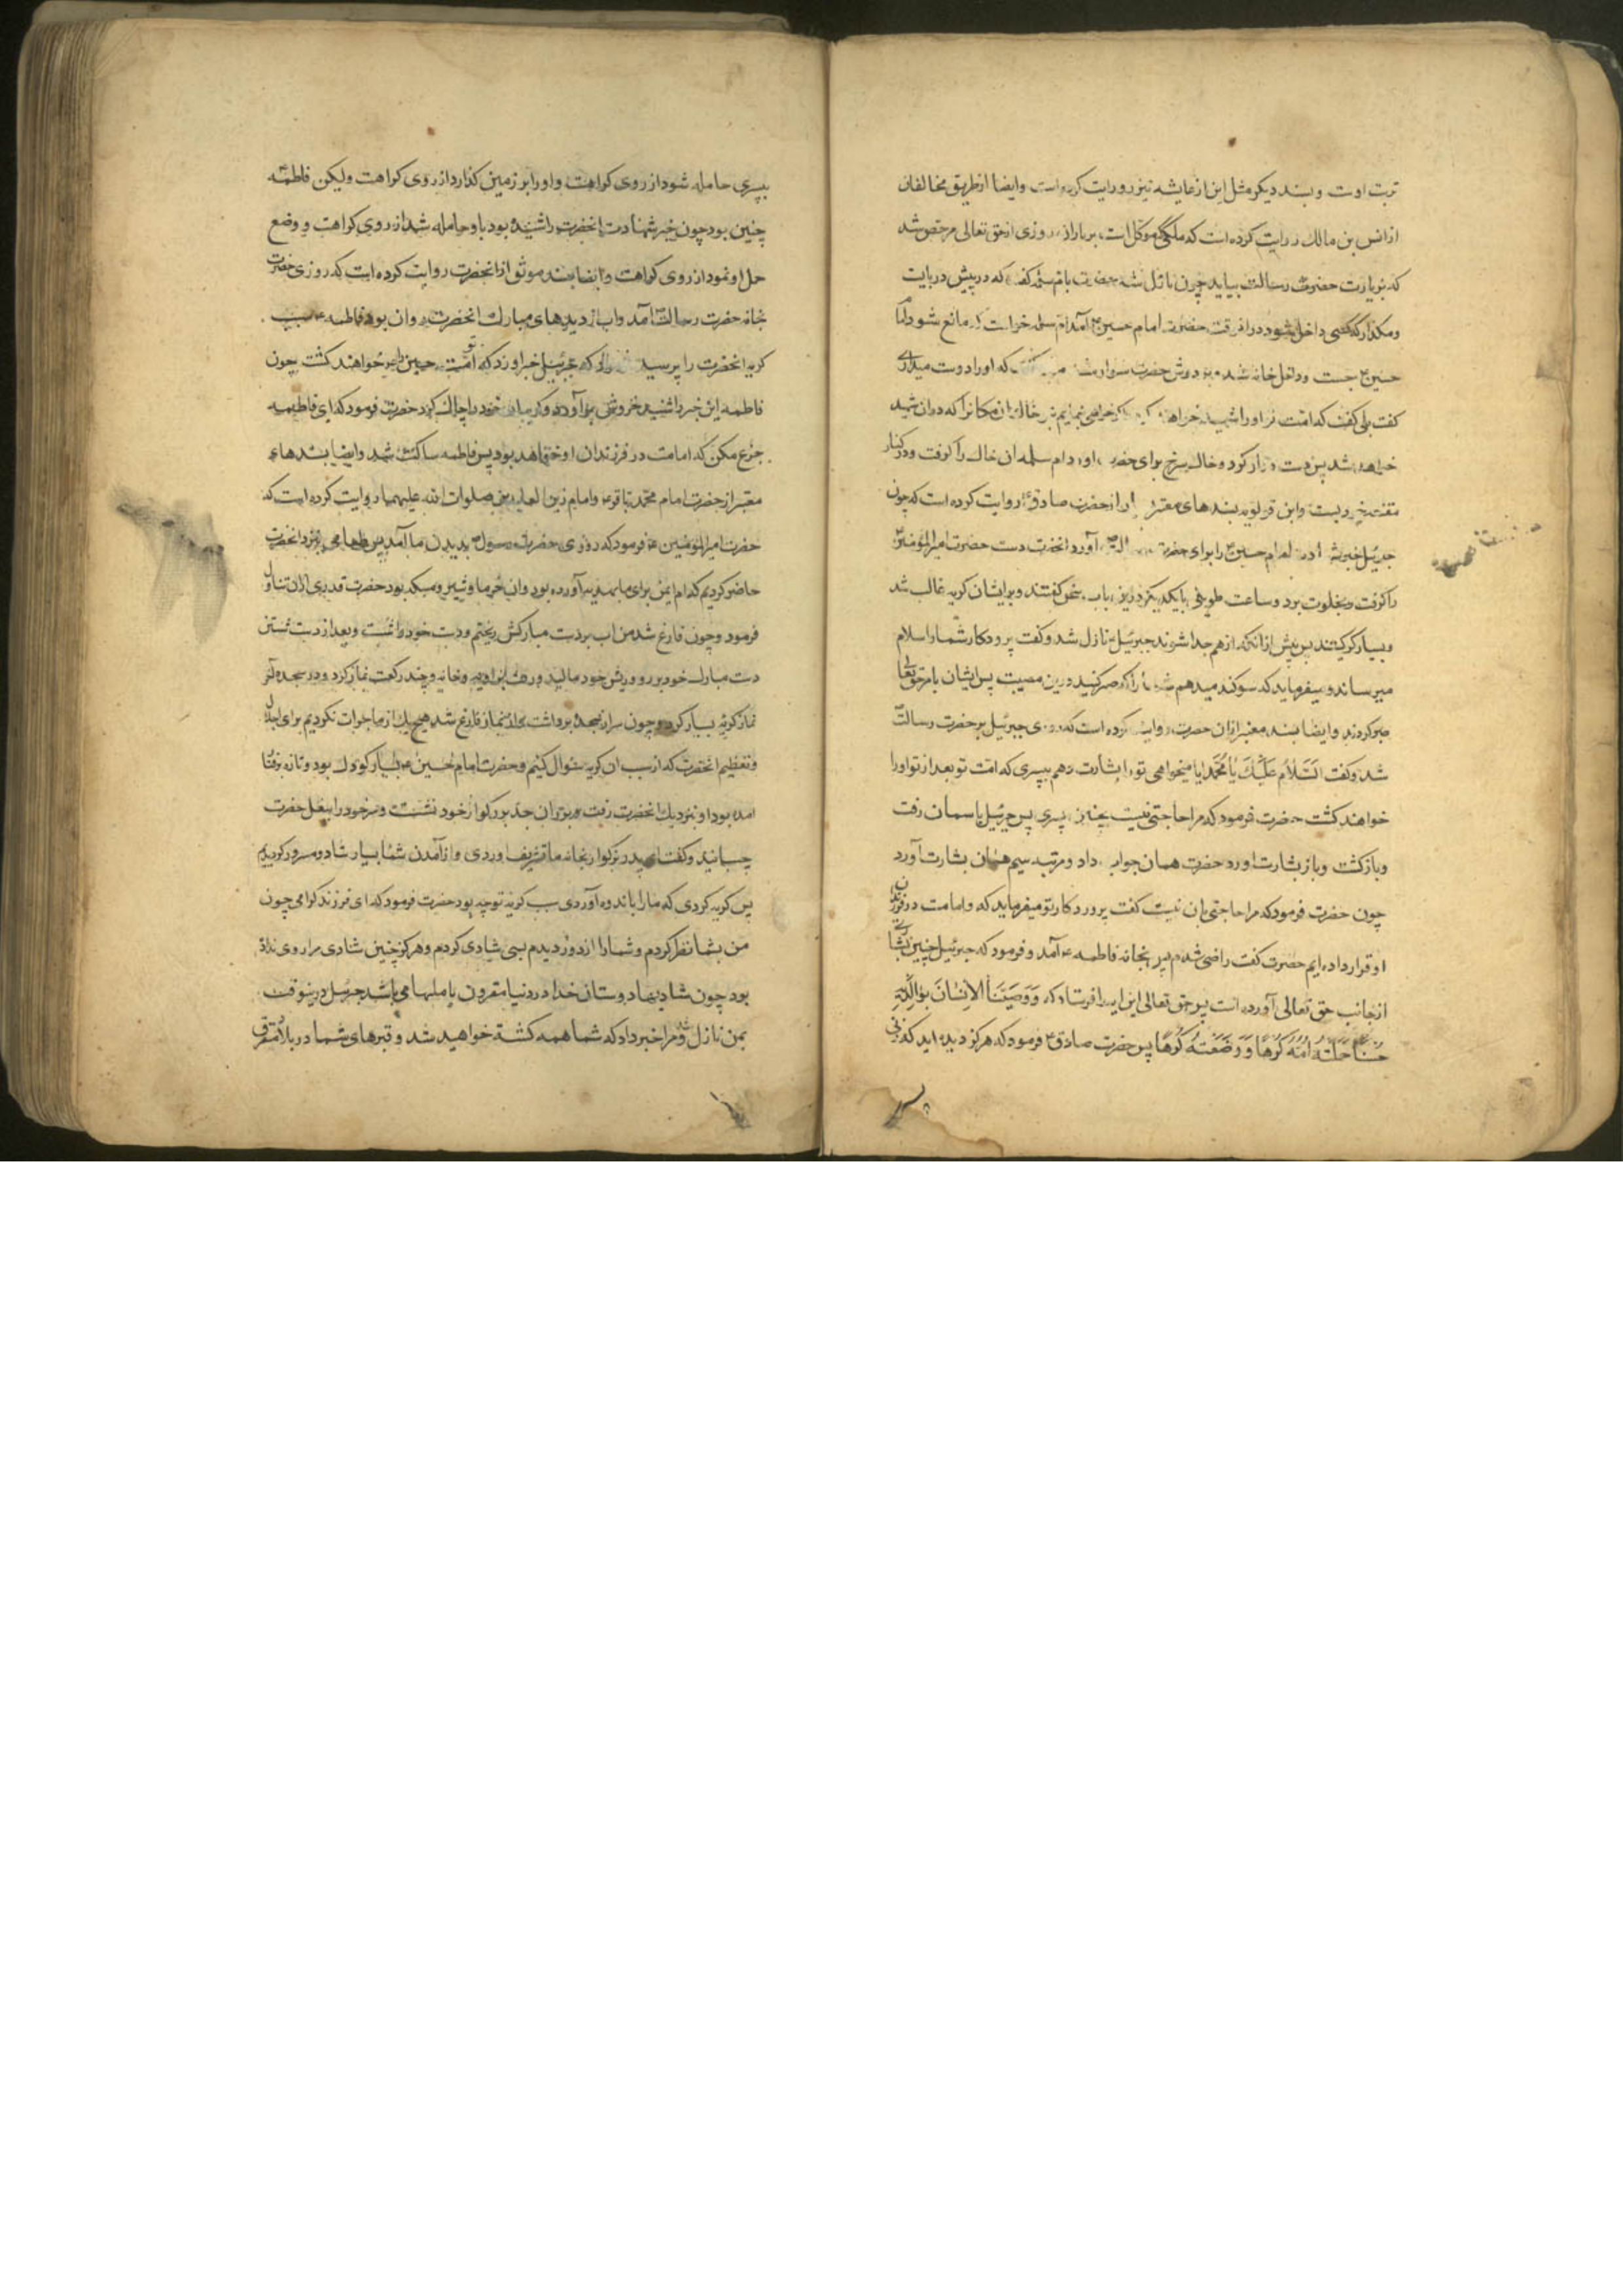 تربت اوست و بسند دیکر مثل این از عایشه نیز روایت کرده است وایضا از طریق مخالفان
از انس بن مالک روایت کرده است که ملکی که موکل است بر باران روزی از حق تعالی مرخص شد
که بزیارت حضرت رسالت بیاید چون نازل شد حضرت بام سلمه کفت که در پیش در بایست
ومکذار که کسی داخل شود در انوقت حضرت امام حسین ع آمد ام سلمه خواست که مانع شود اما
حسین ع جست وداخل خانه شد و بر دوش حضرت سوار شد که اورا دوست میداری
کفت بلی کفت که امت تو اورا شهید خواهند کرد اکر خواهی بنمایم بتو خاک ان مکانرا که دران شهید
خواهد شد پس دست دراز کرد وخاک سرخ برای حضرت اورد وام سلمه ان خاک را کرفت ودر کنار
مقنعه خود بست وابن قولویه بسندهای معتبر از حضرت صادق ع روایت کرده است که چون
جبرئیل خبر شهادت امام حسین ع را برای حضرت رسالت آورد انحضرت دست حضرت امیرالمؤمنین ع
را کرفت وبخلوت برد وساعت طویلی بایکدیکر در این باب سخن کفتند وبر ایشان کریه غالب شد
وبسیار کریستند پس پیش از انکه از هم جدا شوند جبرئیل نازل شد وکفت پروردکار شما را سلام
میرساند ومیفرماید که سوکند میدهم شما را که صبر کنید درین مصیبت پس ایشان بامر حق تعالی
صبر کردند وایضا بسند معتبر ازان حضرت روایت کرده است که روزی جبرئیل بر حضرت رسالت
شد وکفت السَّلامُ عَلَیْکَ یا مُحَمَّد ایا میخواهی تو را بشارت دهم بپسری که امت تو بعد از تو اورا
خواهند کشت حضرت فرمود که مرا حاجتی نیست بچنین پسری پس جبرئیل باسمان رفت
وبازکشت وباز بشارت اورد حضرت همان جواب داد ومرتبه سیم همان بشارت آورد
چون حضرت فرمود که مرا حاجتی بان نیست کفت پروردکار تو میفرماید که وامامت در فرزندان
او قرار داده ایم حضرت کفت راضی شدم پس بخانه فاطمه ع آمد و فرمود که جبرئیل چنین بشارتی
از جانب حق تعالی آورده است پس حق تعالی این ایه را فرستاد که وَوَصَّیْنَا الاِنْسانَ بِوالِدَیْهِ
حُسْناً حَمَلَتْهُ اُمُّهُ کُرْهاً وَوَضَعَتْهُ کُرْهاً پس حضرت صادق ع فرمود که هرکز دیده اید که زنی
بپسری حامله شود از روی کراهت واورا بر زمین کذارد از روی کراهت ولیکن فاطمه
چنین بود چون خبر شهادت انحضرت را شنیده بود باو حامله شد از روی کراهت و وضع
حمل او نمود از روی کراهت وایضا بسند موثق از انحضرت روایت کرده است که روزی حضرت
بخانه حضرت رسالت آمد واب از دیدهای مبارک انحضرت روان بود فاطمه سبب
کریه انحضرت را پرسید که جبرئیل خبر اورد که امت تو حسین را خواهند کشت چون
فاطمه این خبر را شنید خروشی بر آورد وکریبان خود را چاک کرد حضرت فرمود که ای فاطمه
جزع مکن که امامت در فرزندان او خواهد بود پس فاطمه ساکت شد وایضا بسندهای
معتبر از حضرت امام محمد باقر ع وامام زین العابدین صلوات الله علیهما روایت کرده است که
حضرت امیرالمؤمنین ع فرمود که روزی حضرت رسول بدیدن ما آمد پس طعامی نزد انحضرت
حاضر کردیم که ام ایمن برای ما بهدیه آورده بود وان خرما وشیر ومسکه بود حضرت قدری ازان تناول
فرمود وچون فارغ شد من اب بر دست مبارکش ریختم ودست خود را شست وبعد از دست شستن
دست مبارک خود بر رو وریش خود مالید ورفت بزاویه خانه وچند رکعت نماز کرد ودر سجده آخر
نماز کریه بسیار کرد وچون سر از سجده برداشت واز نماز فارغ شد هیچ یک از ما جرات نکردیم برای اجلال
وتعظیم انحضرت که از سبب ان کریه سؤال کنیم وحضرت امام حسین ع بسیار کودک بود وتازه برفتار
امده بود او بنزدیک انحضرت رفت وبر ران جد بزرکوار خود نشست وسر خود را ببغل حضرت
چسبانید وکفت ای پدر بزرکوار بخانه ما تشریف اوردی واز آمدن شما بسیار شاد ومسرور کردیدیم
پس کریه کردی که مارا باندوه آوردی سبب کریه تو چه بود حضرت فرمود که ای فرزند کرامی چون
من بشما نظر کردم وشما را از دور دیدم بسی شادی کردم وهرکز چنین شادی مرا روی نداده
بود چون شادیها دوستان خدا در دنیا مقرون بالمها می باشد جبرئیل درینوقت
بمن نازل شد ومرا خبر داد که شما همه کشته خواهید شد وقبرهای شما در بلاد متفرق